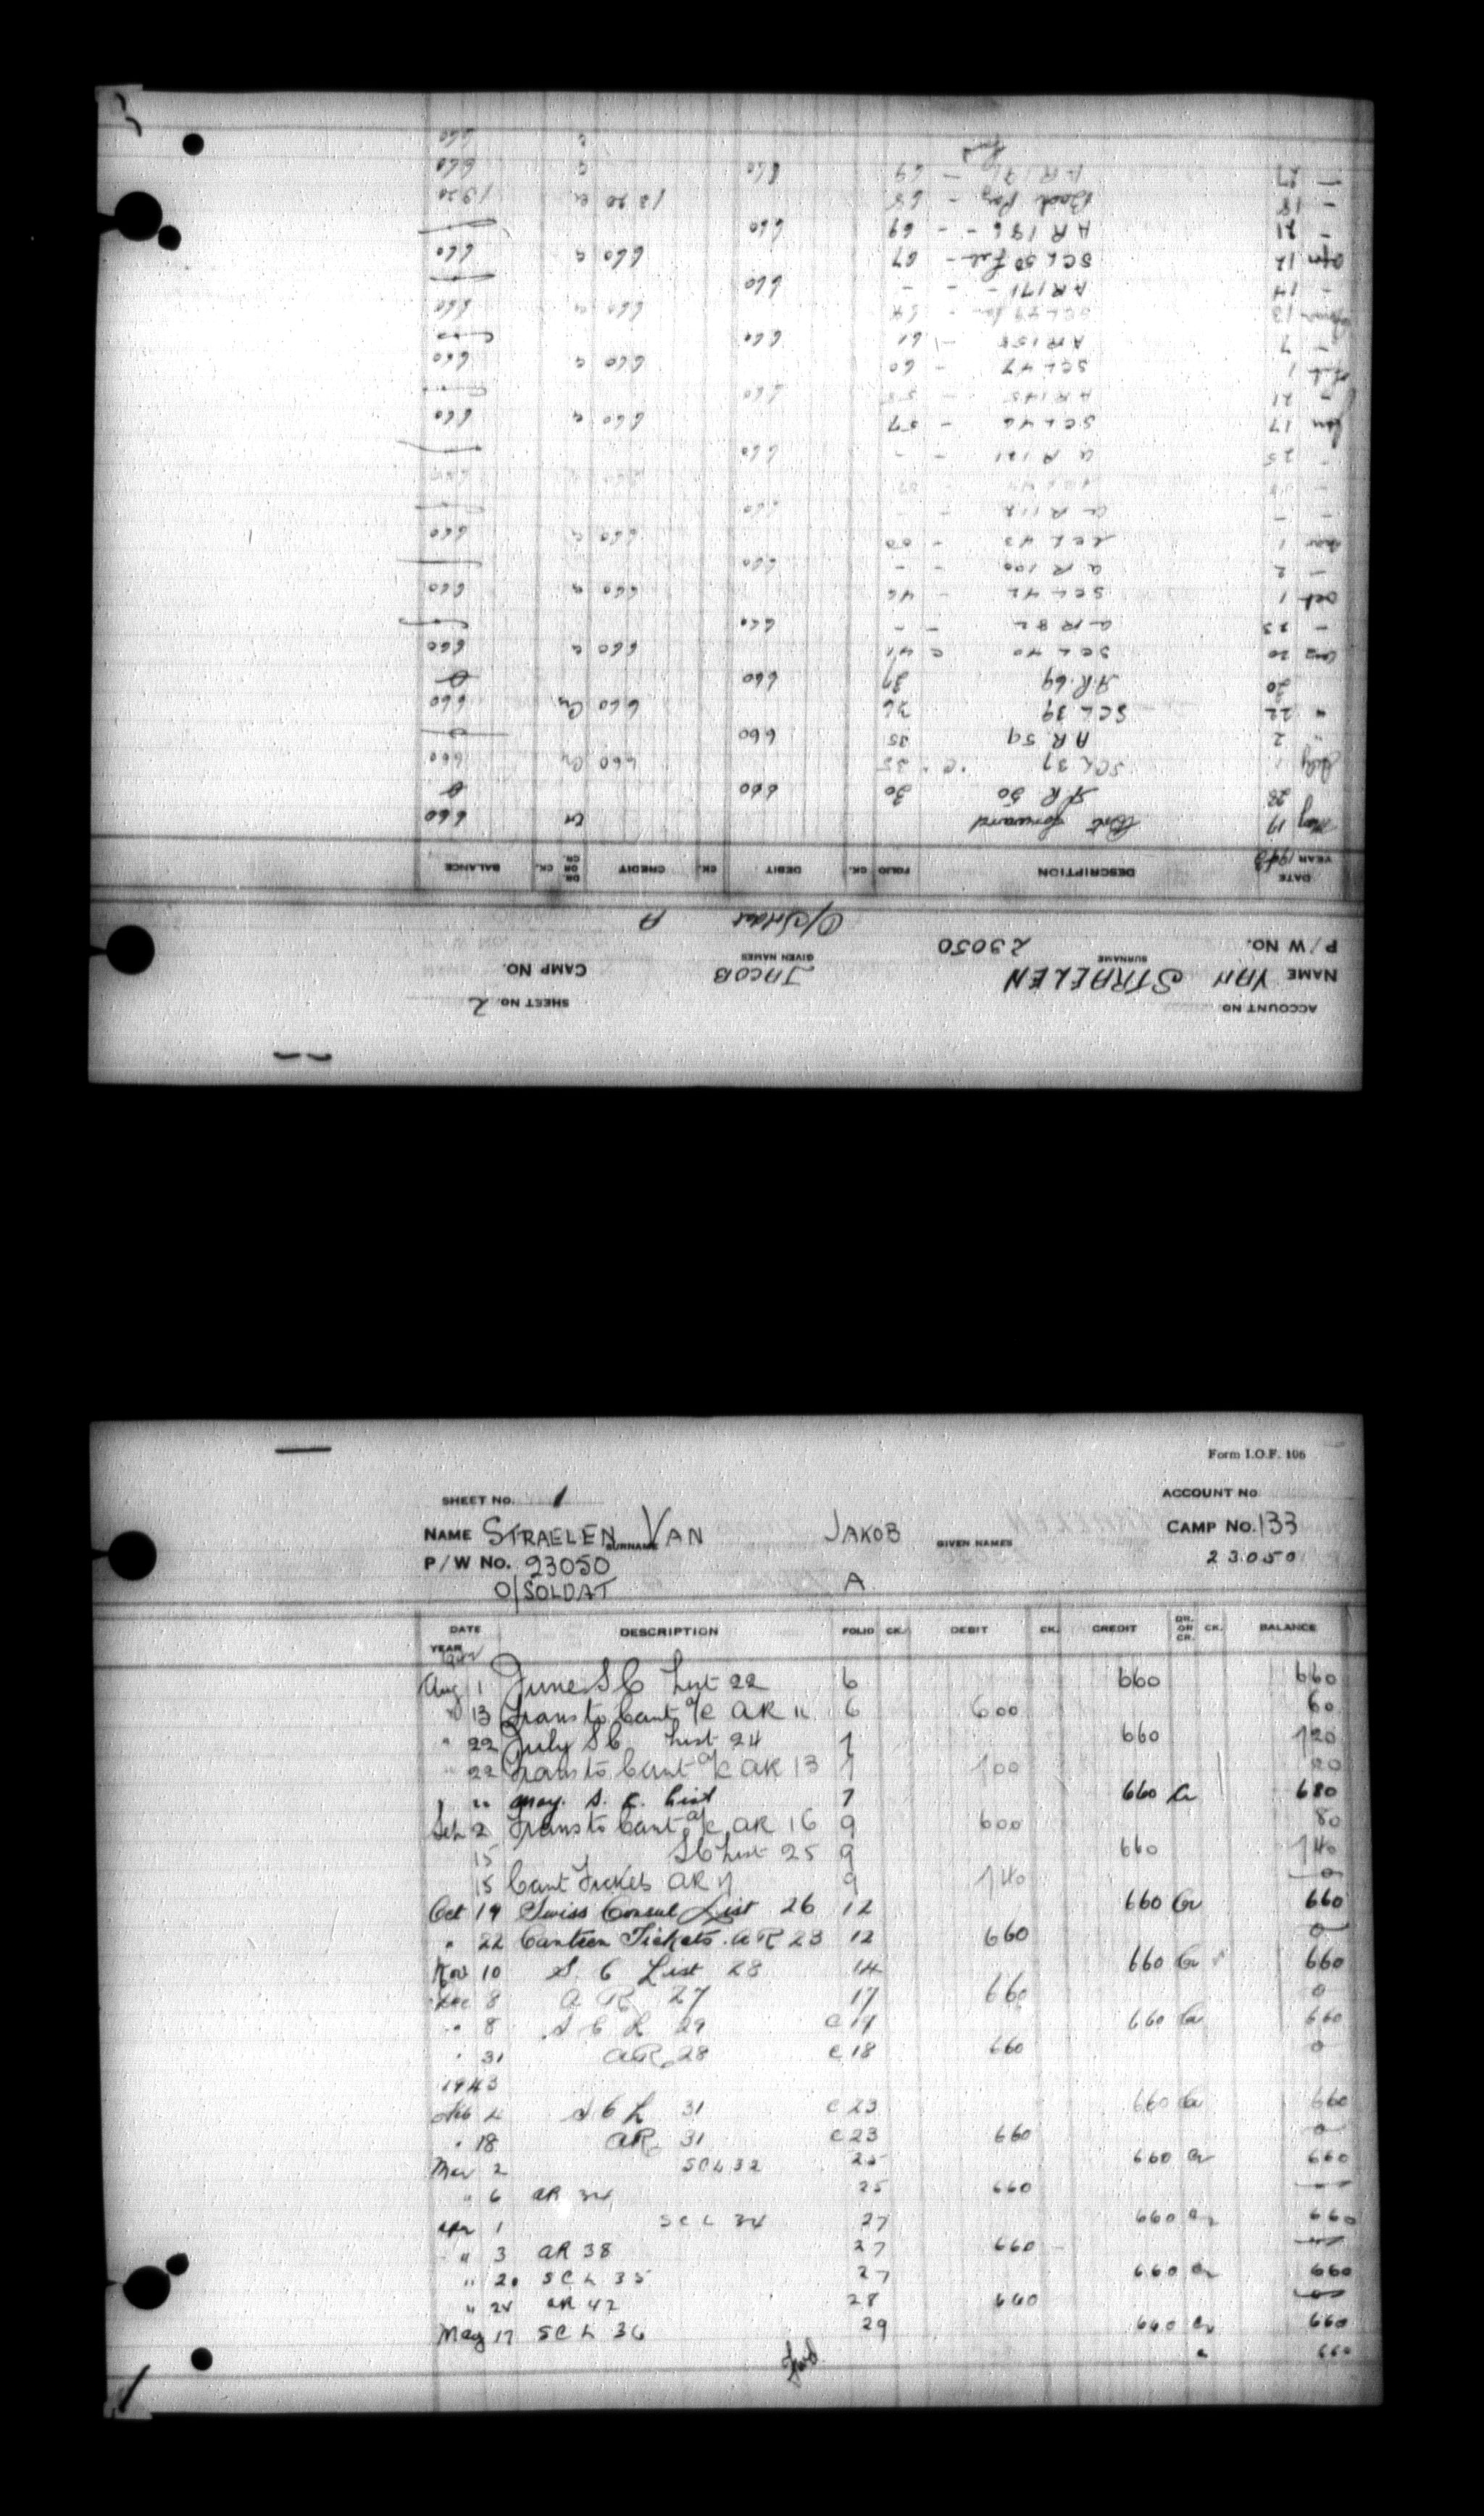 ACCOUNT NO
SHEET NO. 2
NAME VAN STRAELEN JACOB CAMP NO.
SURNAME GIVEN NAMES
P/W NO. 23050
O/Soldat A
DATE YEAR 1943 DESCRIPTION FOLIO CK. DEBIT CK. CREDIT DR. OR CR. CK. BALANCE
May 17 forward Cr 660
28 AR 50 30 660 0
July 1 SCL 37 "C" 35 660 Cr 660
" 2 AR 59 35 660
" 22 SCL 39 36 660 Cr 660
30 A.R. 69 37 660 0
Aug 20 SCL 40 C 41 660 660
- 23 AR 82 - - 660
Oct 1 SCL 42 - 46 660 660
- 2 AR 100 - - 660
Nov 1 SCL 43 - 50 660 660
- - AR 112 660
- 25 AR 121 - - 660
Jan 17 SCL 46 - 57 660 660
- 21 AR 145 - 58 660
Feb 1 SCL 47 - 60 660 660
- 7 AR 158 - 61 660
13 SCL 49 - 64 660 660
- 14 AR 171 - - 660
Apr 12 SCL 50 Feb - 67 660 660
- 21 AR 186 - - 69 660
- 18 Back Pay - 68 1320 1320
- 27 - 69 660 660
Fwd 660
Form I.O.F. 106
SHEET NO. 1 ACCOUNT NO
NAME STRAELEN VAN JAKOB CAMP NO. 133
SURNAME GIVEN NAMES
P/W NO. 23050 23050
O/SOLDAT A
DATE YEAR DESCRIPTION FOLIO CK. DEBIT CK. CREDIT DR. OR CR. CK. BALANCE
Aug 1 June S C List 22 6 660 660
" 13 Trans to Cant a/c AR 11 6 600 60
" 22 July S C List 24 7 660 720
" 22 Trans to Cant a/c AR 13 7 700 20
" " May. S. C. List 7 660 Cr 680
Sep 2 Trans to Cant a/c AR 16 9 600 80
15 S C List 25 9 660 740
15 Cant Tickets AR 17 9 740 0
Oct 19 Swiss Consul List 26 12 660 Cr 660
" 22 Canteen Tickets. AR 23 12 660 0
Nov 10 S. C List 28 14 660 Cr 660
Dec 8 AR 27 17 660 0
" 8 S C L 29 C 17 660 Cr 660
" 31 AR 28 C 18 660 0
1943
Feb 4 S C L 31 C 23 660 Cr 660
" 18 AR 31 C 23 660 0
Mar 2 SCL 32 25 660 Cr 660
" 6 AR 34 25 660
Apr 1 SCL 34 27 660 Cr 660
" 3 AR 38 27 660
" 20 SCL 35 27 660 Cr 660
" 24 AR 42 28 660
May 17 SCL 36 29 660 Cr 660
Fwd 660